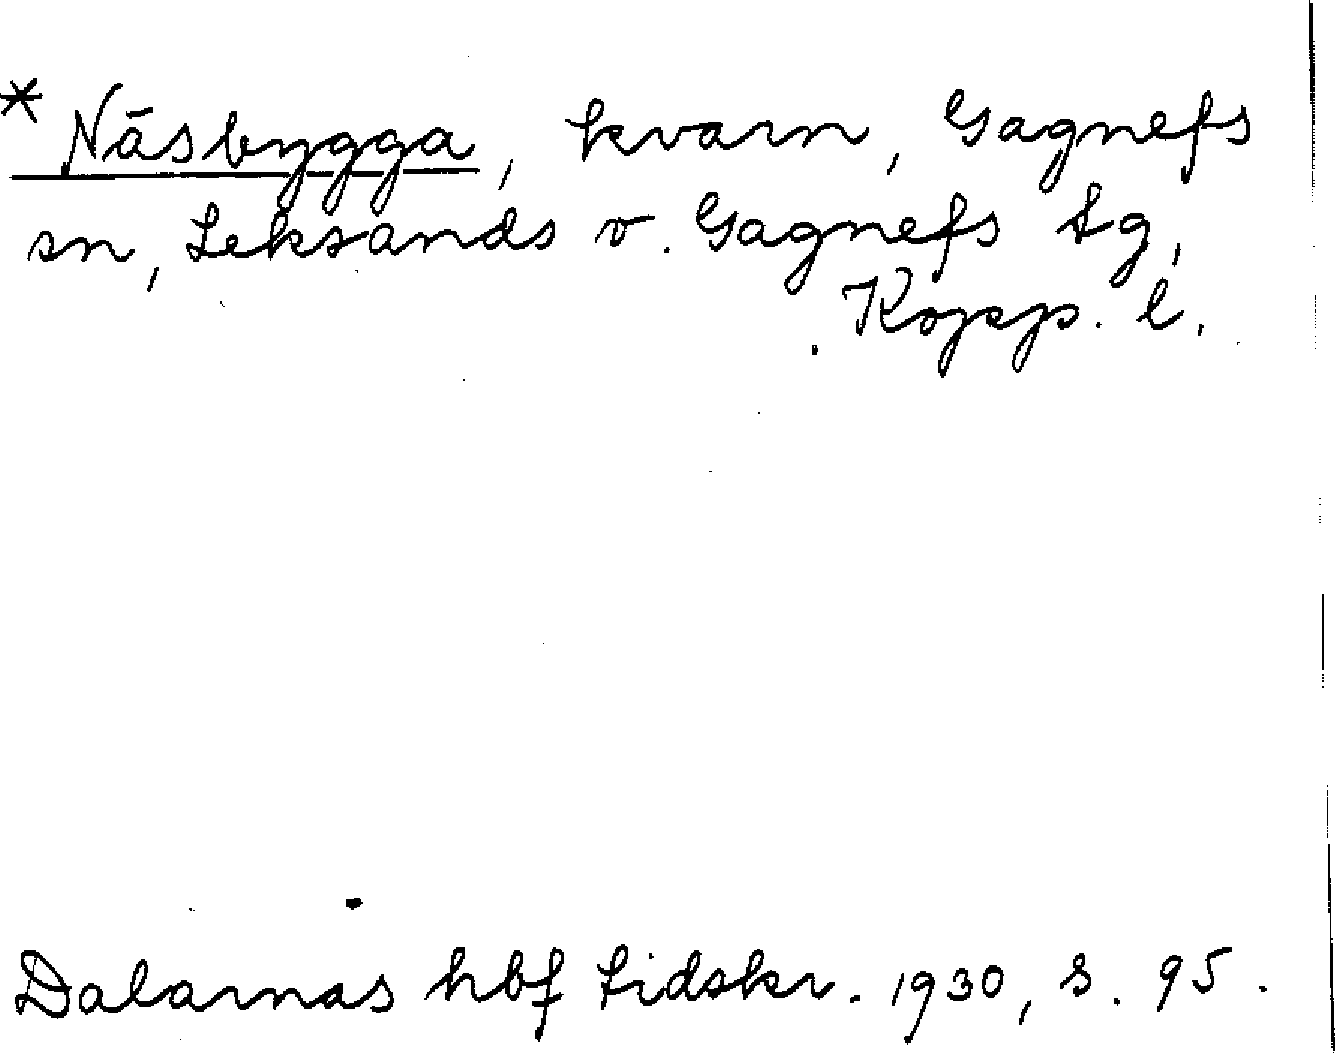 * Näsbygga, kvarn, Gagnefs
sn, Leksands o. Gagnefs tg,
Kopp. l.
Dalarnas hbf tidskr. 1930, s. 95.